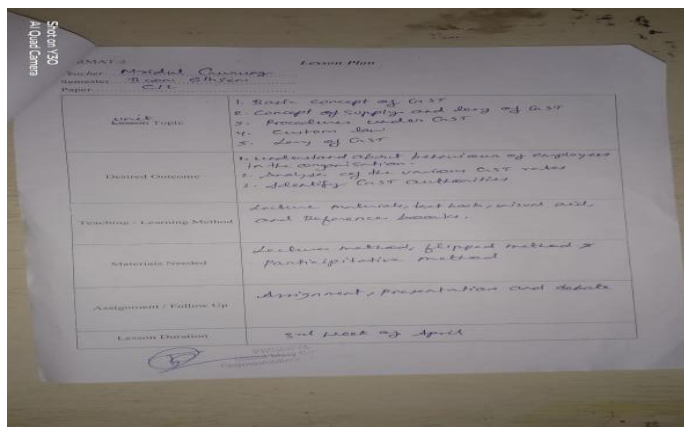 Shot on Y30
AI Quad Camera
Lesson Plan
Teacher
Semester B.com 6th Sem
Paper
unit
Lesson Topic
1. Basic concept of GST
2. Concept of Supply and levy of GST
3. Procedures under GST
4. Custom law
5. Levy of GST
Desired Outcome
1. Understand about behaviour of employees
in the organisation.
2. Analyse of the various GST rates
3. Identify GST authorities
Teaching - Learning Method
Lecture materials, text book, visual aid,
and Reference books.
Materials Needed
Lecture method, flipped method &
Participitative method
Assignment / Follow Up
Assignment, presentation and debate
Lesson Duration
2nd week of April